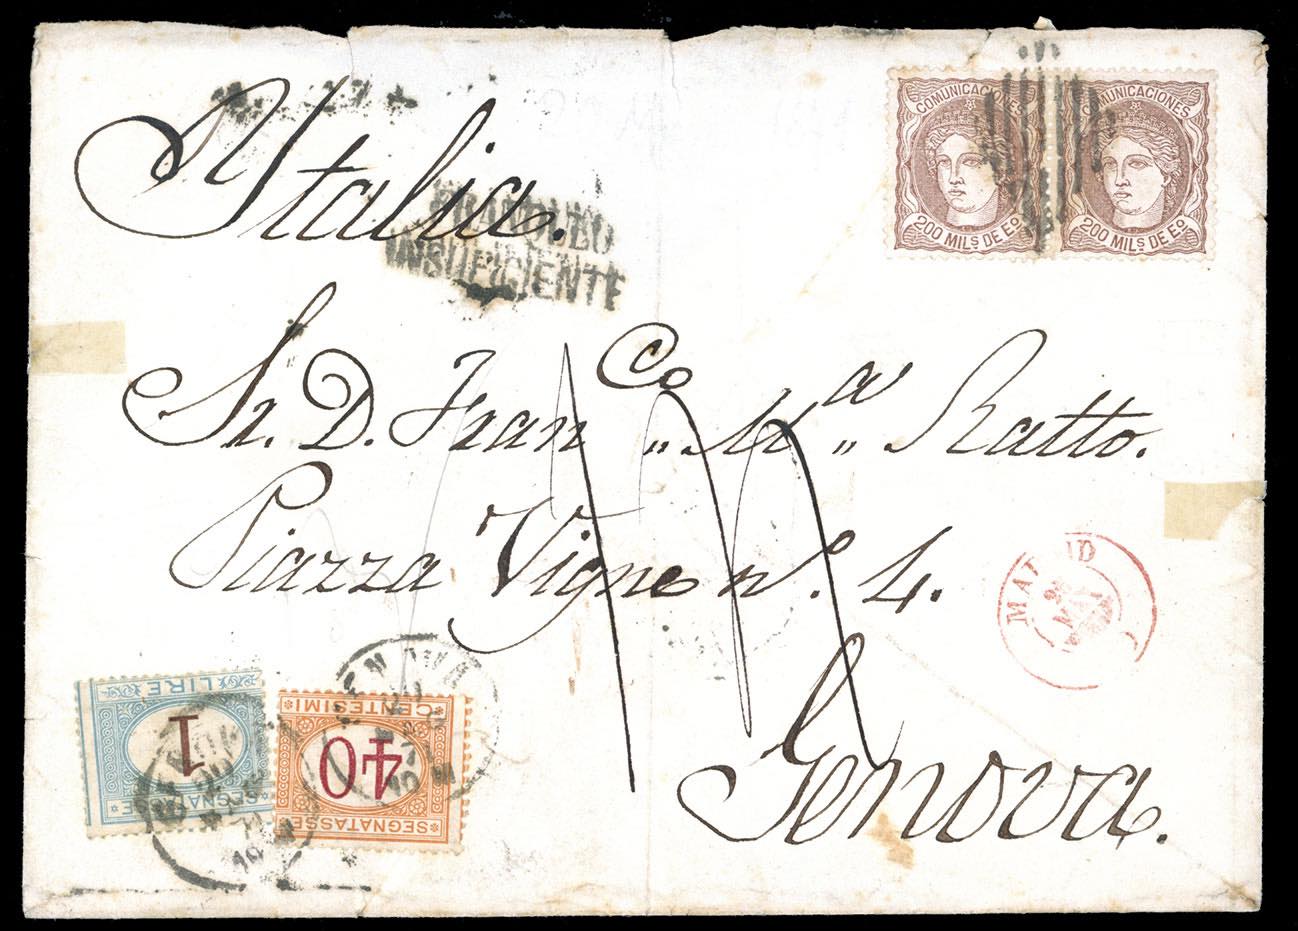 Italia.
COMUNICACIONES
200 MILS DE Eo
COMUNICACIONES
200 MILS DE Eo
FRANQUEO
INSUFICIENTE
Sr. D. Franco „ Ma „ Ratto.
Piazza Vigne no. 4.
Genova.
14
MADRID
LIRE
1
SEGNATASSE
CENTESIMI
40
SEGNATASSE
GENOVA